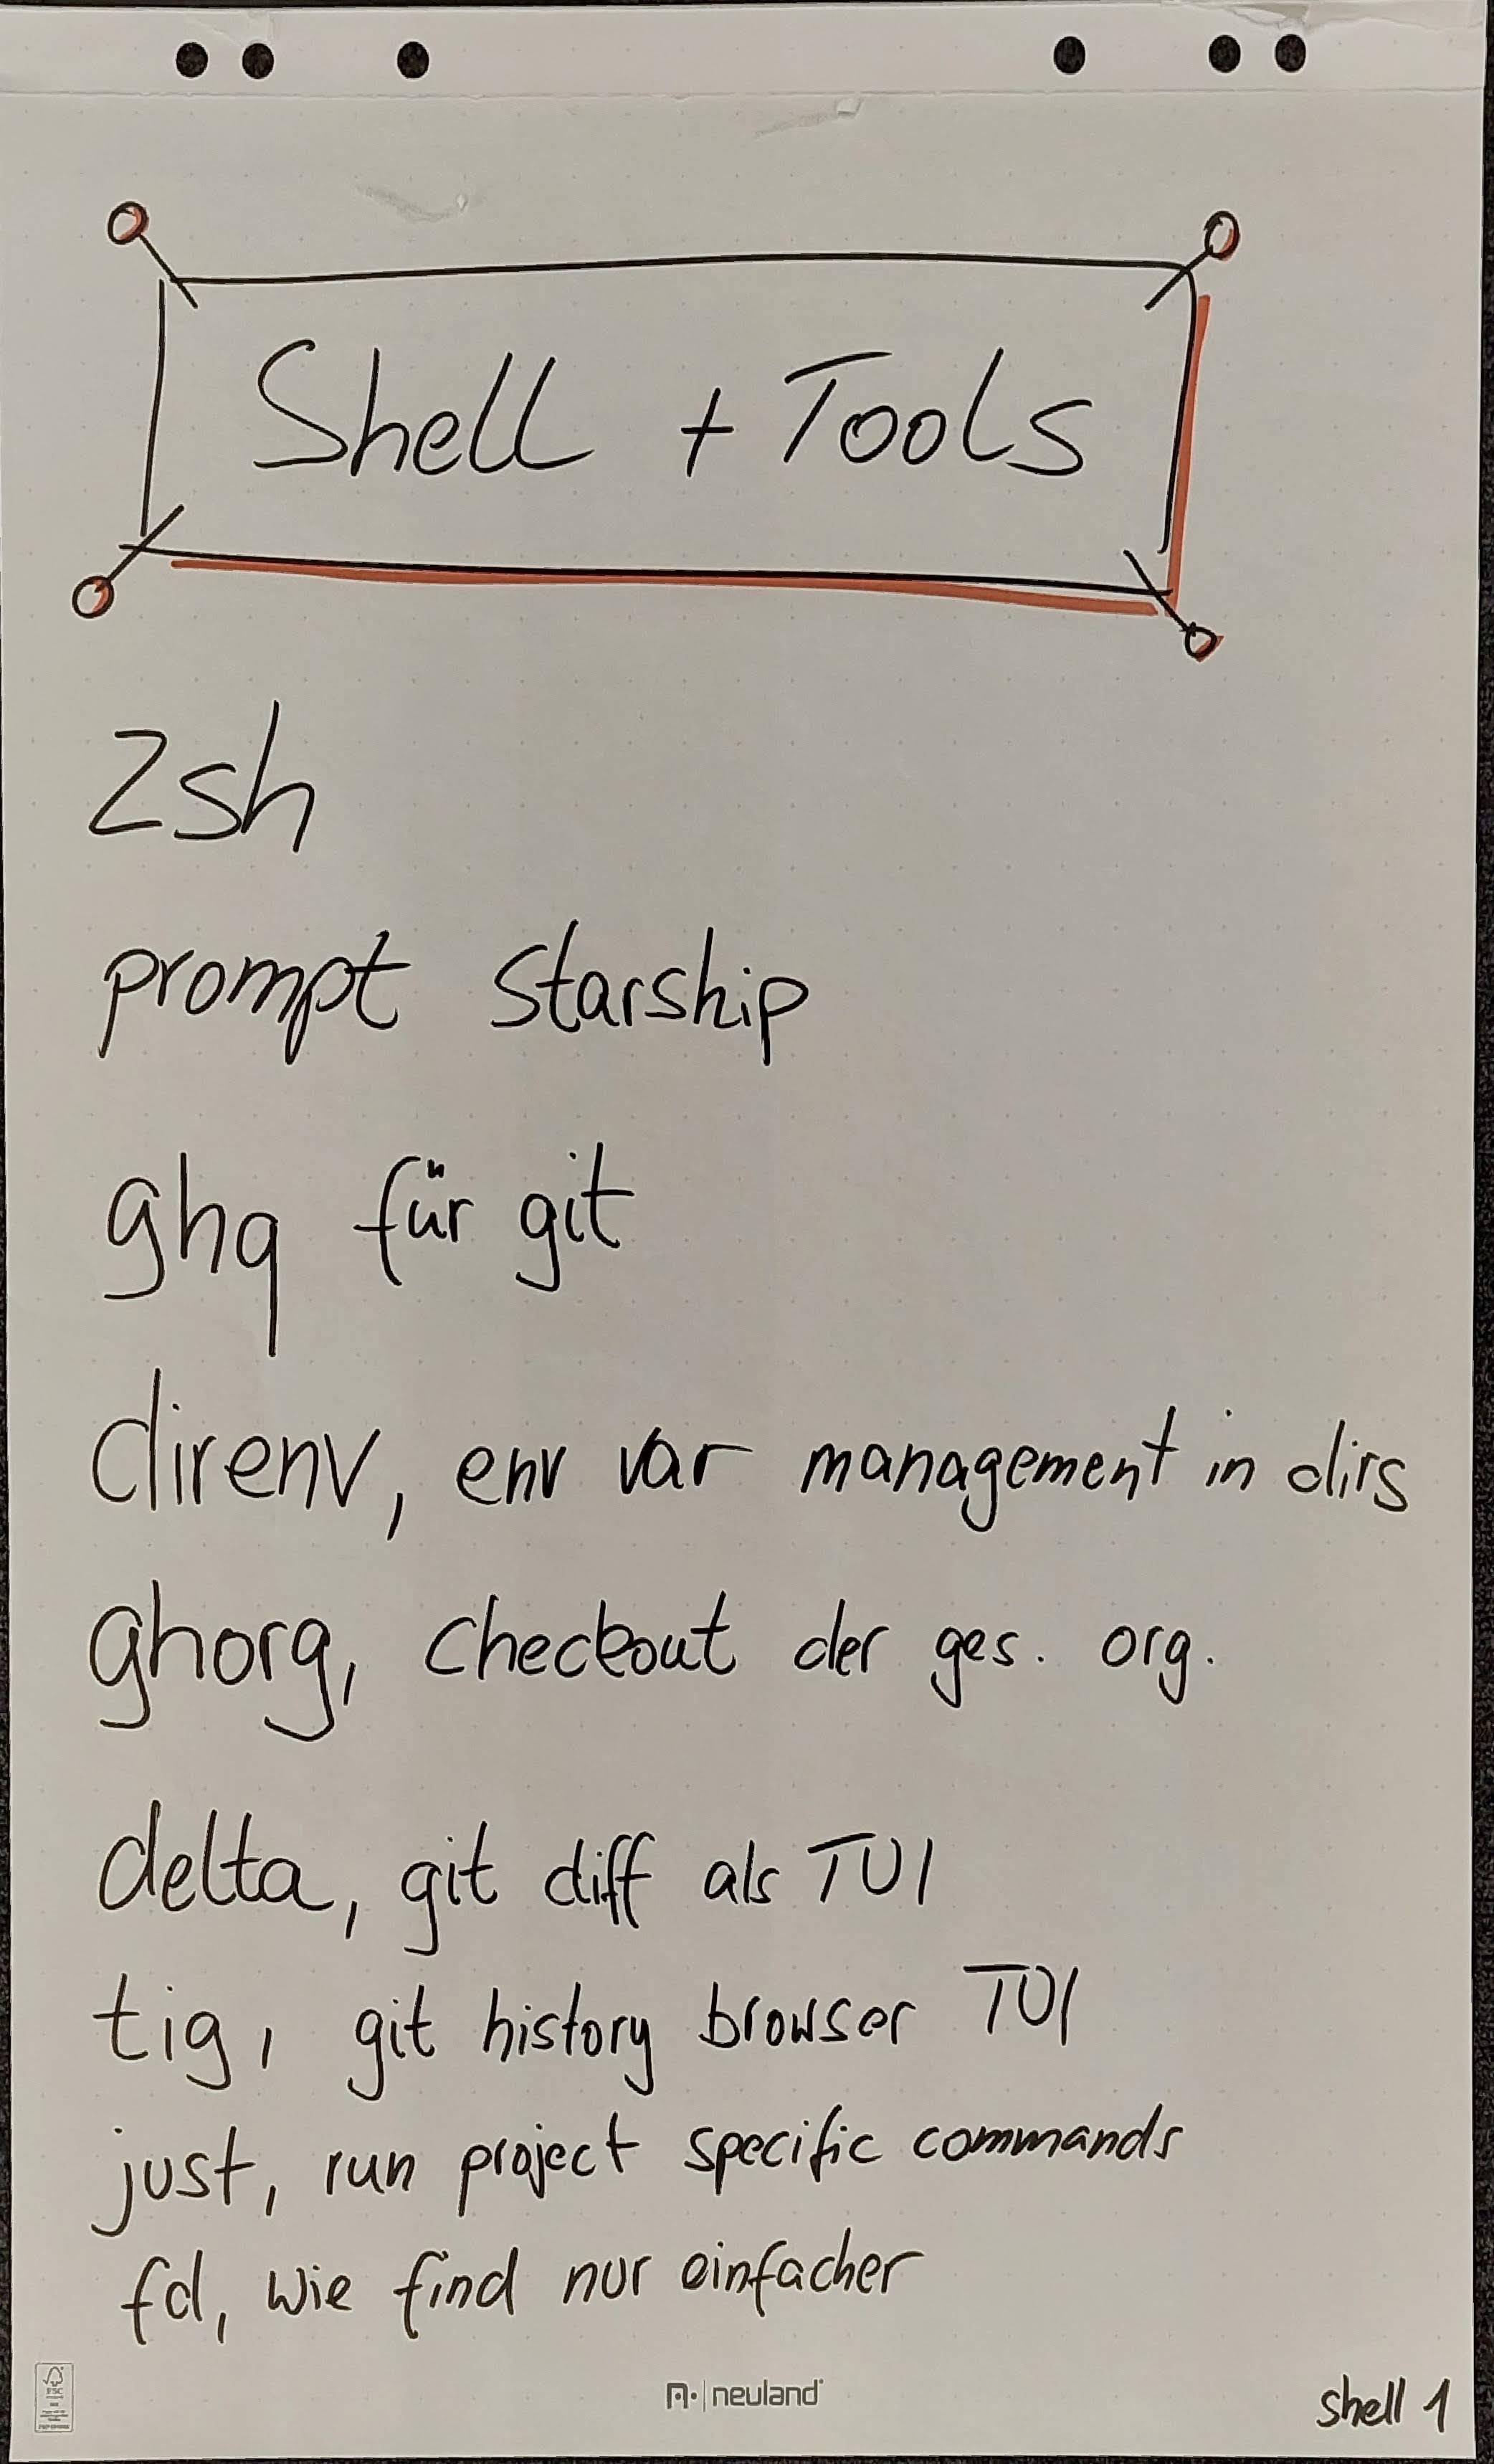 Shell + Tools
zsh
prompt starship
ghq für git
direnv, env var management in dirs
ghorg, checkout der ges. org.
delta, git diff als TUI
tig, git history browser TUI
just, run project specific commands
fd, wie find nur einfacher
FSC
neuland
shell 1